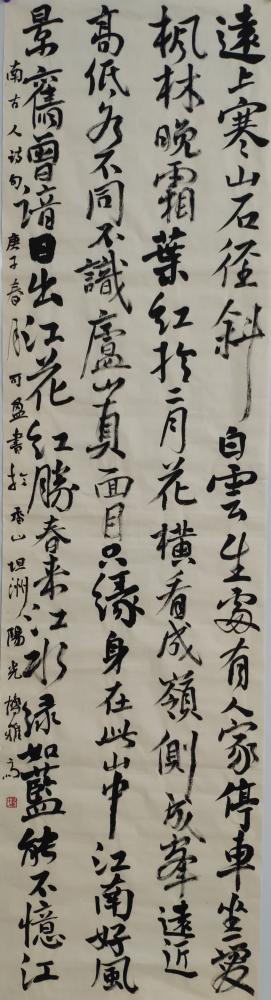 遠上寒山石径斜白雲生處有人家停車坐愛
楓林晚霜葉紅於二月花橫看成嶺側成峯遠近
高低各不同不識廬山真面目只緣身在此山中江南好風
景舊曾諳日出江花紅勝春來江水綠如藍能不憶江
南古人詩句庚子春月可盈書於香山坦洲陽光